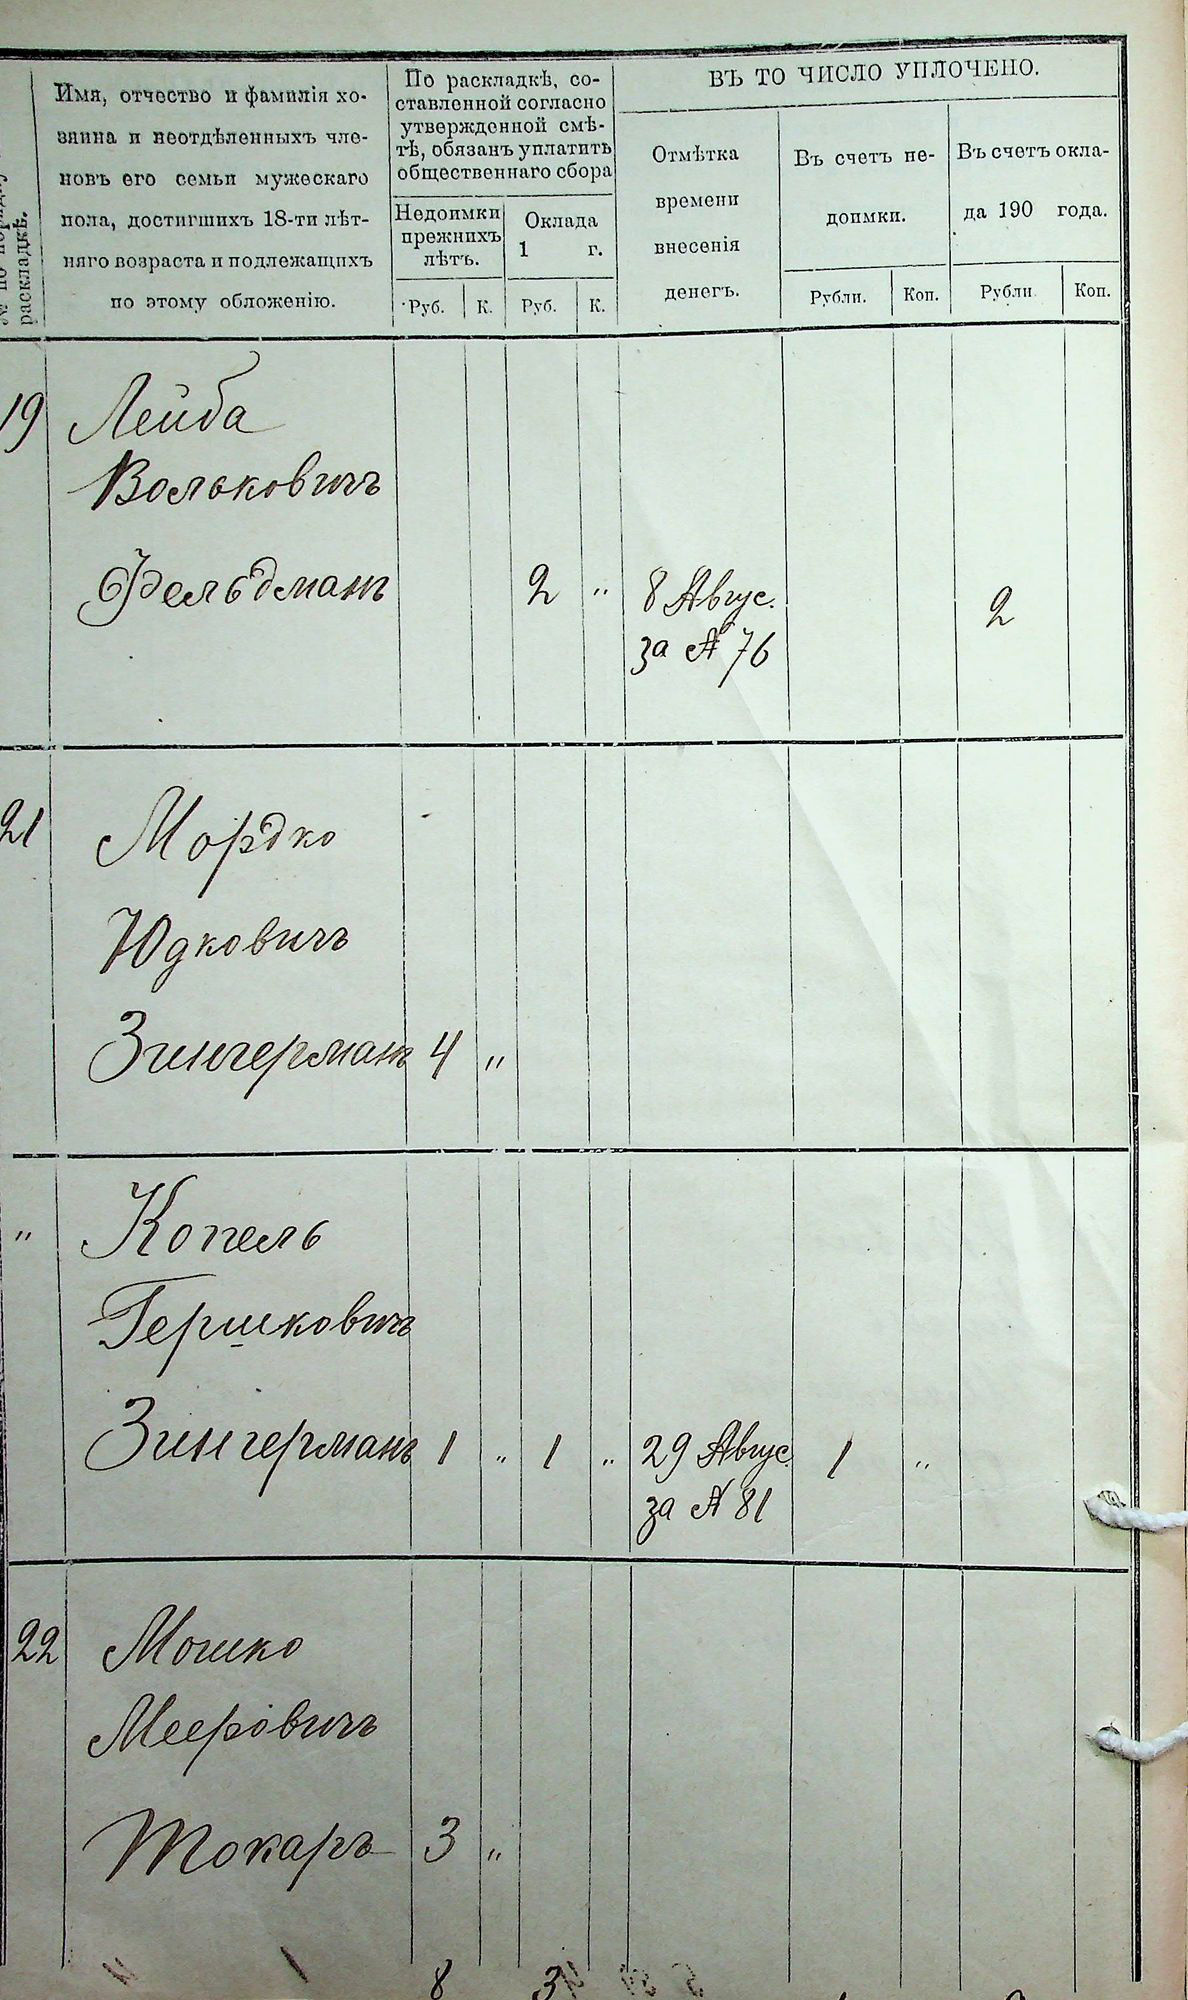 раскладкѣ.
Имя, отчество и фамилія хо-
зяина и неотдѣленныхъ чле-
новъ его семьи мужескаго
пола, достигшихъ 18-ти лѣт-
няго возраста и подлежащихъ
по этому обложенію.
По раскладкѣ, со-
ставленной согласно
утвержденной смѣ-
тѣ, обязанъ уплатить
общественнаго сбора
Недоимки
прежнихъ
лѣтъ.
Оклада
1 г.
Руб. К. Руб. К.
ВЪ ТО ЧИСЛО УПЛОЧЕНО.
Отмѣтка
времени
внесенія
денегъ.
Въ счетъ не-
доимки.
Въ счетъ окла-
да 190 года.
Рубли. Коп. Рубли. Коп.
19 Лейба
Вольковичъ
Фельдманъ 2 " 8 Авгус. 2
за № 76
21 Мордко
Юдковичъ
Зингерманъ 4 "
" Копель
Гершковичъ
Зингерманъ 1 " 1 " 29 Авгус. 1 "
за № 81
22 Мошко
Мееровичъ
Токаръ 3 "
8 3